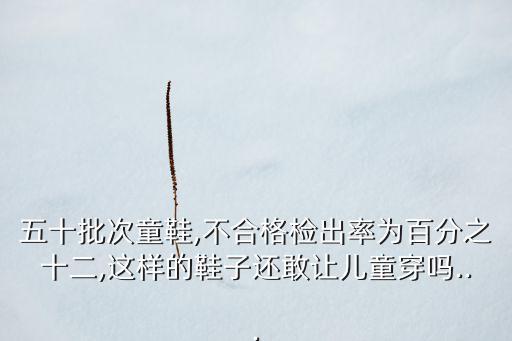 五十批次童鞋,不合格检出率为百分之
十二,这样的鞋子还敢让儿童穿吗..
.